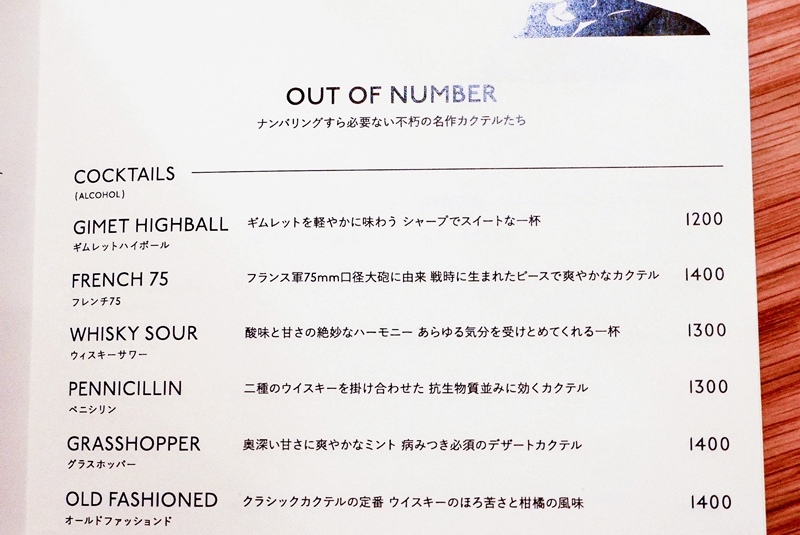 OUT OF NUMBER
ナンバリングすら必要ない不朽の名作カクテルたち
COCKTAILS
(ALCOHOL)
GIMET HIGHBALL ギムレットを軽やかに味わう シャープでスイートな一杯 1200
ギムレットハイボール
FRENCH 75 フランス軍75mm口径大砲に由来 戦時に生まれたピースで爽やかなカクテル 1400
フレンチ75
WHISKY SOUR 酸味と甘さの絶妙なハーモニー あらゆる気分を受けとめてくれる一杯 1300
ウィスキーサワー
PENNICILLIN 二種のウイスキーを掛け合わせた 抗生物質並みに効くカクテル 1300
ペニシリン
GRASSHOPPER 奥深い甘さに爽やかなミント 病みつき必須のデザートカクテル 1400
グラスホッパー
OLD FASHIONED クラシックカクテルの定番 ウイスキーのほろ苦さと柑橘の風味 1400
オールドファッションド